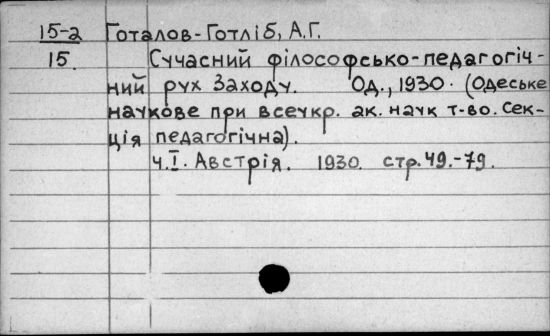 15-2 Готалов-Готліб, А.Г.
15. Сучасний філософсько-педагогіч-
ний рух Заходу. Од., 1930. (Одеське
наукове при всеукр. ак. наук т-во. Сек-
ція педагогічна).
ч.I. Австрія. 1930. стр. 49.-79.